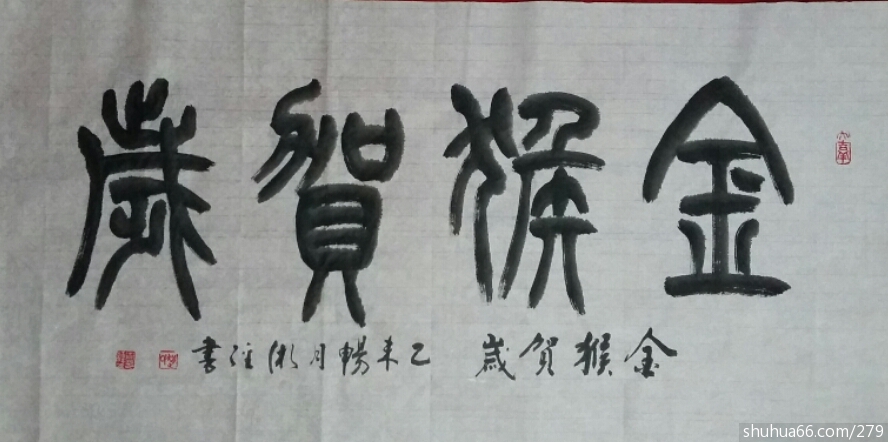 金猴賀歲
金猴贺歲 乙未暢月
書
shuhua66.com/279